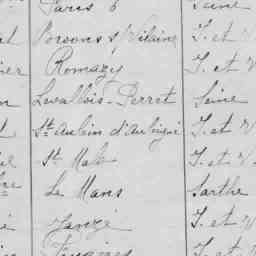 Paris 6 Seine
Broons s/ Vilaine I. et V
Romazy I. et V
Levallois-Perret Seine
St Aubin d'Aubigné I. et V
St Malo I. et V
Le Mans Sarthe
Janzé I. et V
I. et V